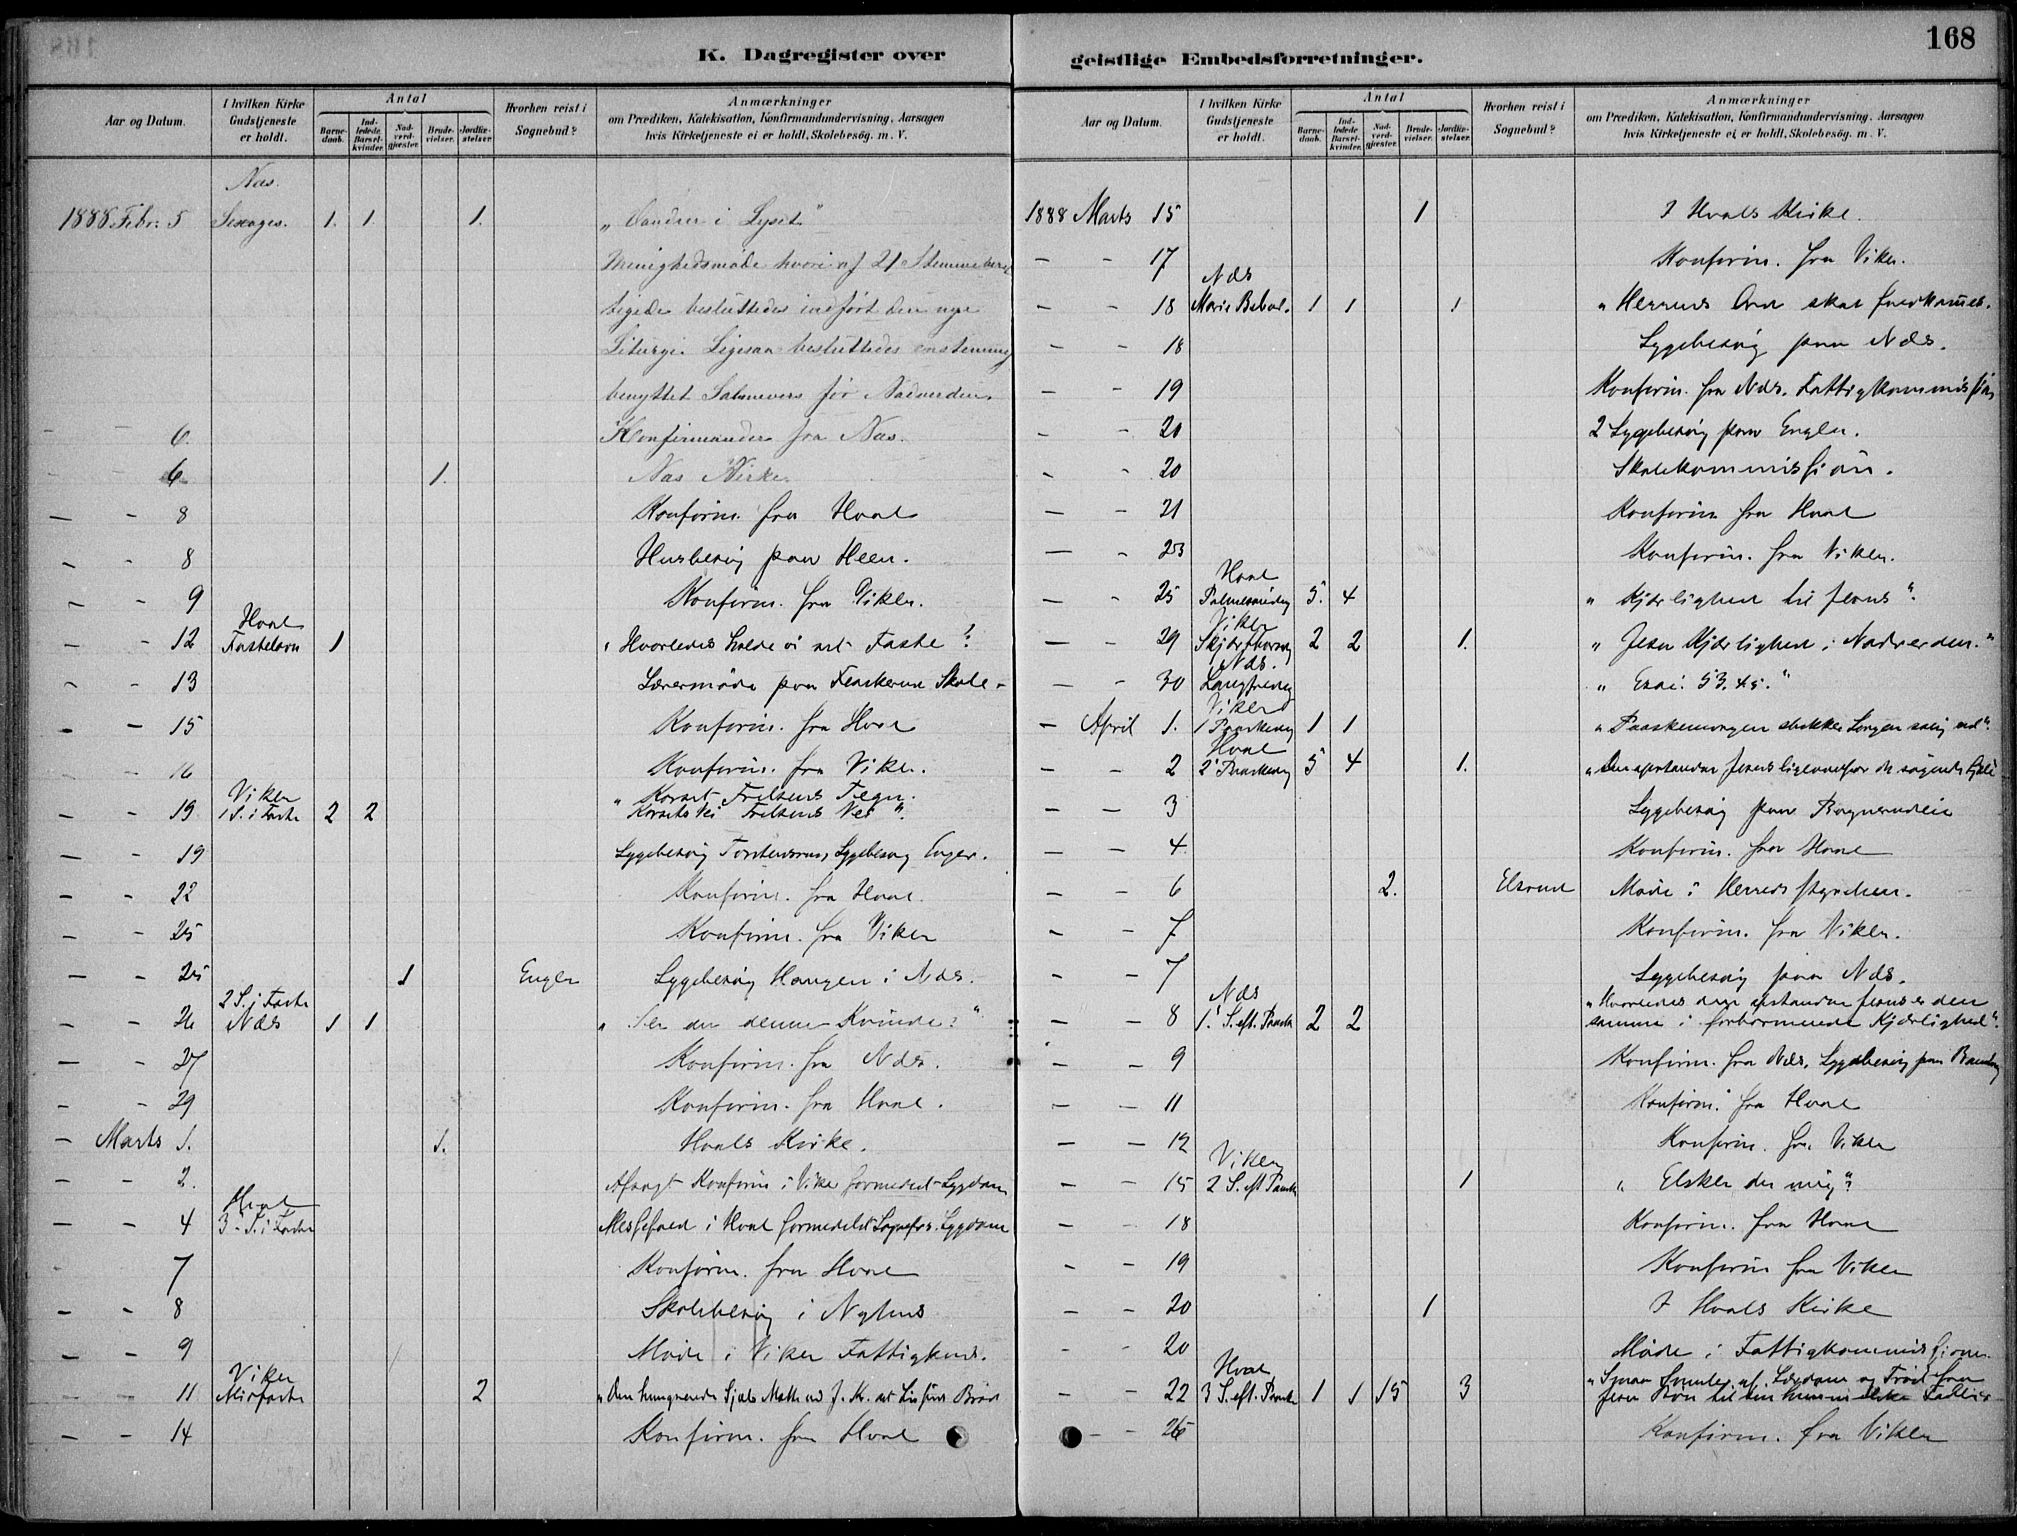 168
K. Dagregister over
Aar og Datum.
I hvilken Kirke Gudstjeneste er holdt.
Antal
Barne-daab.
Ind-ledede Barsel-kvinder.
Nad-verd-gjæster.
Brude-vielser.
Jordfæ-stelser.
Hvorhen reist i Sognebud?
Anmærkninger
om Prædiken, Katekisation, Konfirmandundervisning, Aarsagen
hvis Kirketjeneste ei er holdt, Skolebesög. m. V.
Næs.
1888 Febr. 5 Sexages. 1. 1. 1. „Vandrer i Lyset“
Menighedsmøde hvori af 21 Stemmeberet
tigede besluttedes indført den nye
Liturgi. Ligesaa besluttedes enstemmig
benyttet Salmevers før Nadverden.
- - 6. Konfirmander fra Næs.
- - 6 1. Næs Kirke.
- - 8 Konfirm. fra Hval
- - 8 Husbesøg paa Heen.
- - 9 Konfirm. fra Viker.
Hval
- - 12 Fastelavn 1 „Hvorledes holde vi ret Faste?
- - 13 Lærermøde paa Skole
- - 15 Konfirm. fra Hval
- - 16 Konfirm. fra Viker.
Viker
- - 19 1 S. i Faste 2 2 „Korset Frelsens Tegn.
Korsets Vei Frelsens Vei“.
- - 19 Sygebesøg Sygebesøg Enger.
- - 22 Konfirm. fra Hval.
- - 25 Konfirm. fra Viker
- - 25 1 Enger Sygebesøg Haugen i Næs.
2 S. i Faste
- - 26 Næs 1 1 „Ser du denne Kvinde?“
- - 27 Konfirm. fra Næs.
- - 29 Konfirm. fra Hval.
- Marts 1. 1. Hvals Kirke.
- - 2. Afsagt Konfirm i Viker formedelst Sygdom
Hval
- - 4 3 S. i Faste Messefald i Hval formedelst Sognepr. Sygdom
- 7 Konfirm. fra Hval
- - 8 Skolebesøg i
- - 9 Møde i Viker Fattigkms.
Viker
- - 11 Midfaste 2 „Den hungrende Sjæls Mætte ved J. Kr. det Livsens Brød
- - 14 Konfirm. fra Hval
geistlige Embedsforretninger.
Aar og Datum.
I hvilken Kirke Gudstjeneste er holdt.
Antal
Barne-daab.
Ind-ledede Barsel-kvinder.
Nad-verd-gjæster.
Brude-vielser.
Jordfæ-stelser.
Hvorhen reist i Sognebud?
Anmærkninger
om Prædiken, Katekisation, Konfirmandundervisning, Aarsagen
hvis Kirketjeneste ei er holdt, Skolebesög. m. V.
1888 Marts 15 1 I Hvals Kirke.
- - 17 Konfirm. fra Viker.
Næs
- - 18 Marie Bebud. 1 1 1 „Herrens Ord skal fuldkommes.
- - 18 Sygebesøg paa Næs.
- - 19 Konfirm. fra Næs. Fattigkommission
- - 20 2 Sygebesøg paa Enger.
- - 20 Skolekommission.
- - 21 Konfirm fra Hval
- - 23 Konfirm. fra Viker.
Hval
- - 25 Palmesøndag 5. 4 „Kjærlighed til Jesus“.
Viker
- - 29 Skjærthorsdag 2 2 1. „Jesu Kjærlighed i Nadverden.“
Næs.
- - 30 Langfredag „Esai. 53. 4. 5.“
Viker
- April 1. 1 Paaskedag 1 1 „Paaskemorgen slukker Sorgen evig ud“.
Hval
- - 2 2 Paaskedag 5 4 1. „Den opstandne Jesus ligeoverfor de søgende Sjæle
- - 3 Sygebesøg paa
- - 4 Konfirm. fra Hval
- - 6 2. Elsrud Møde i Herredsstyrelsen.
- - 7 Konfirm. fra Viker.
- - 7 Sygebesøg paa Næs.
Næs „Hvorledes den opstandne Jesus er den
- - 8 1. S. eft. Paaske 2 2 samme i forbarmende Kjærlighed“.
- - 9 Konfirm. fra Næs. Sygebesøg paa
- - 11 Konfirm. fra Hval
- - 12 Konfirm. fra Viker
Viker
- - 15 2 S. eft Paaske 1 „Elsker du mig“?
- - 18 Konfirm. fra Hval
- - 19 Konfirm fra Viker
- - 20 1 I Hvals Kirke
- - 20 Møde i Fattigkommissionen
Hval
- - 22 3 S. eft. Paaske 1 1 15 3 af Lærdom og Trøst fra
Jesu Bøn til den himmelske Fader
- - 26 Konfirm. fra Viker